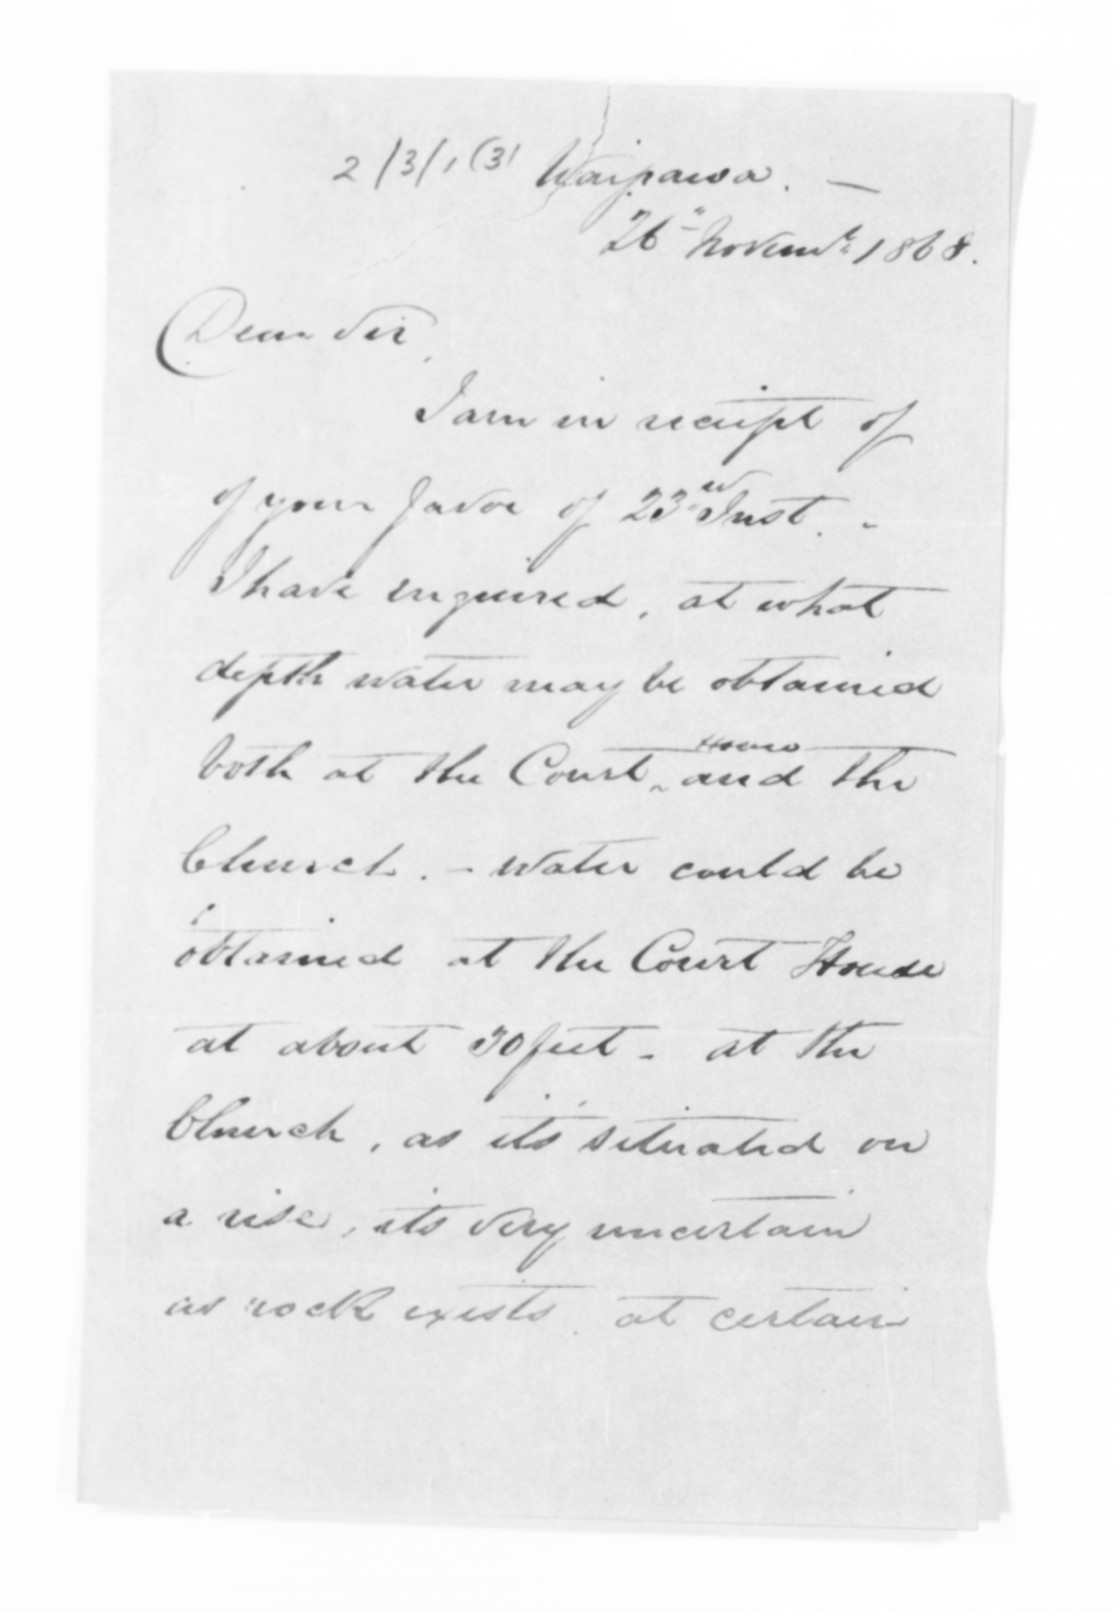 2/3/1 (3) Waipawa. —
26" Novemb. 1868.
Dear Sir,
I am in receipt of
of your favor of 23rd Inst. -
I have enquired, at what
depth water may be obtained
both at the Court ^House and the
Church. - Water could be
obtained at the Court House
at about 30 feet - at the
Church, as it's situated on
a rise, its very uncertain
as rock exists at certain